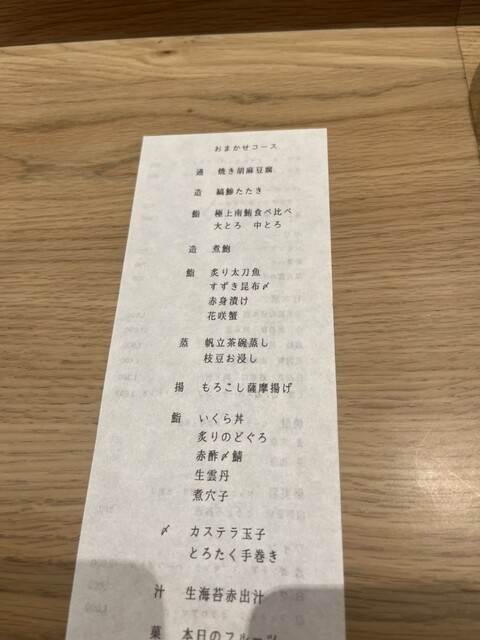 おまかせコース
通 焼き胡麻豆腐
造 縞鯵たたき
鮨 極上南鮪食べ比べ
大とろ 中とろ
造 煮鮑
鮨 炙り太刀魚
すずき昆布〆
赤身漬け
花咲蟹
蒸 帆立茶碗蒸し
枝豆お浸し
揚 もろこし薩摩揚げ
鮨 いくら丼
炙りのどぐろ
赤酢〆鯖
生雲丹
煮穴子
〆 カステラ玉子
とろたく手巻き
汁 生海苔赤出汁
菓 本日のフルーツ